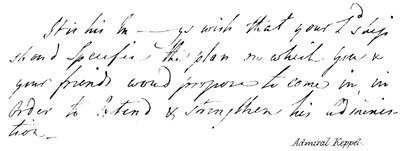 It is his M——ys wish that your L^d ship
should Specifie the plan on which you &
your friends would propose to come in, in
Order to Extend & strengthen his adminis-
tion.
Admiral Keppel.